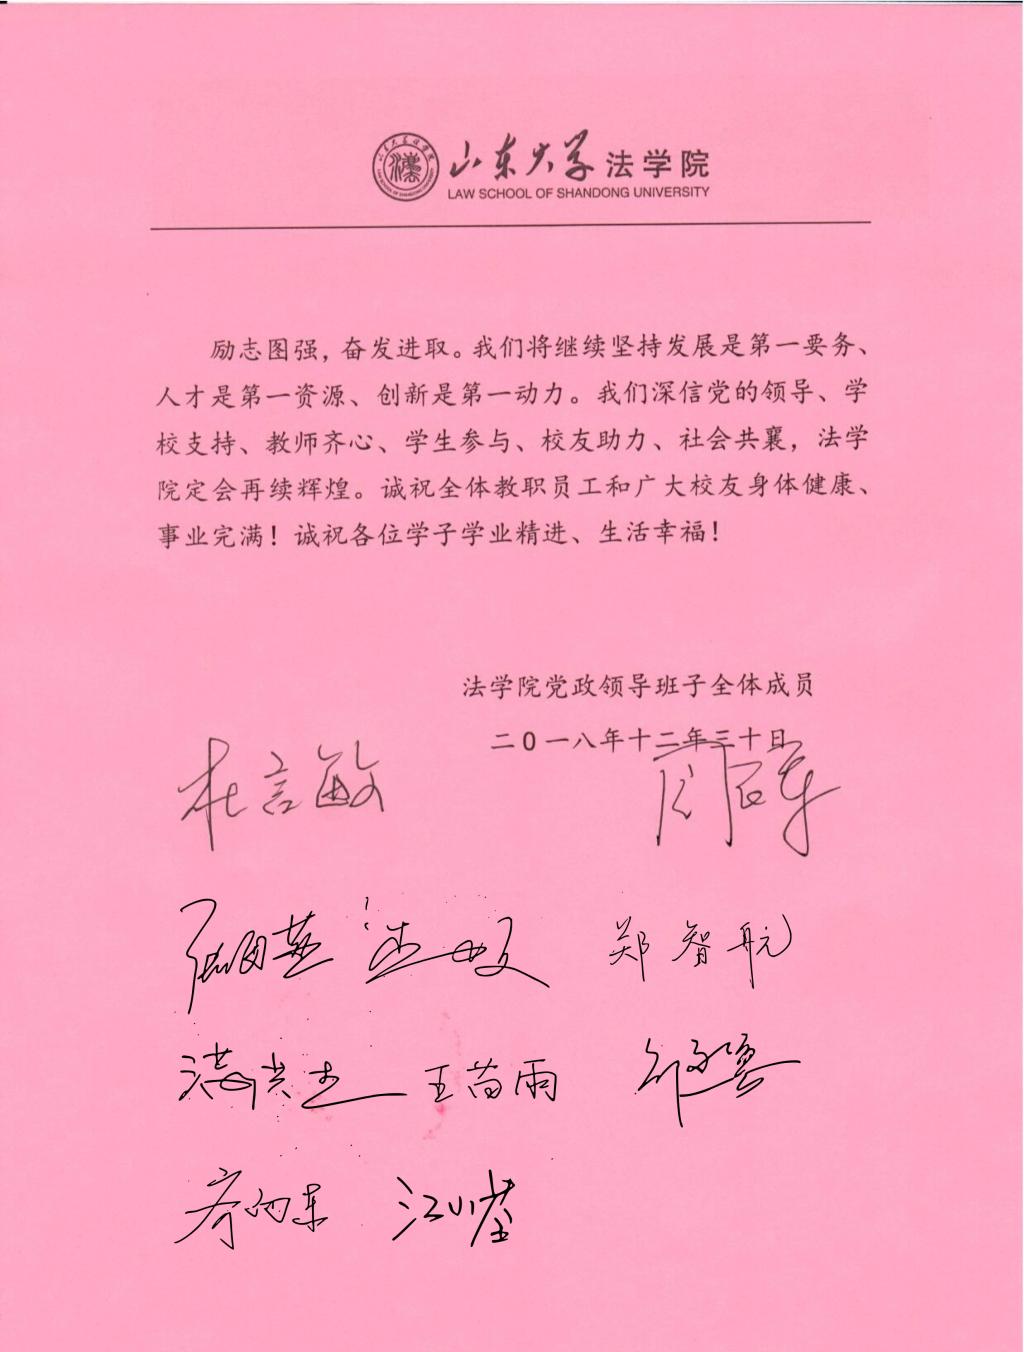 山东大学法学院
LAW SCHOOL OF SHANDONG UNIVERSITY
励志图强，奋发进取。我们将继续坚持发展是第一要务、
人才是第一资源、创新是第一动力。我们深信党的领导、学
校支持、教师齐心、学生参与、校友助力、社会共襄，法学
院定会再续辉煌。诚祝全体教职员工和广大校友身体健康、
事业完满！诚祝各位学子学业精进、生活幸福！
法学院党政领导班子全体成员
二〇一八年十二年三十日
杜言敏
郑智航
满洪杰 王苗雨